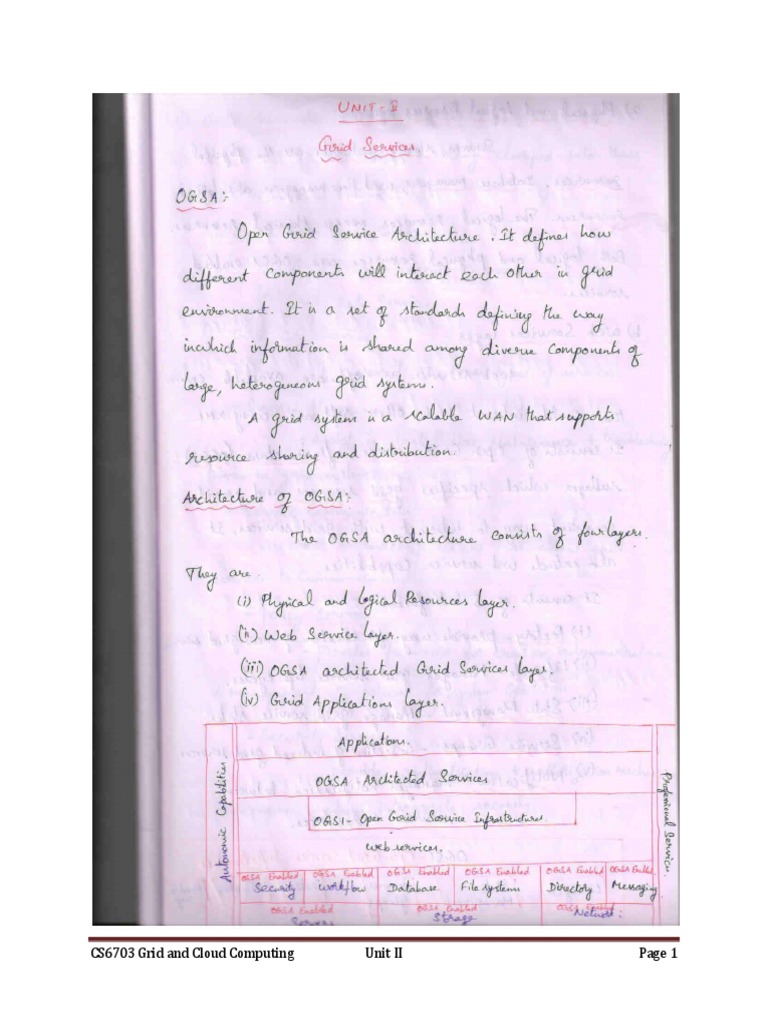 UNIT-II
Grid Services
OGSA:-
Open Grid Service Architecture. It defines how
different components will interact each other in grid
environment. It is a set of standards defining the way
inwhich information is shared among diverse components of
large, heterogeneous grid system.
A grid system is a scalable WAN that supports
resource sharing and distribution.
Architecture of OGSA:-
The OGSA architecture consists of four layers.
They are.
(i) Physical and Logical Resources layer.
(ii) Web Service layer.
(iii) OGSA architected Grid Services layer.
(iv) Grid Applications layer.
Applications.
OGSA Architected Services
OGSI - Open Grid Service Infrastructures
Web services.
Autonomic Capabilities
Professional Services
OGSA Enabled OGSA Enabled OGSA Enabled OGSA Enabled OGSA Enabled OGSA Enabled
Security Workflow Database File systems Directory Messaging
OGSA Enabled OGSA Enabled OGSA Enabled
Servers Storage Network
CS6703 Grid and Cloud Computing Unit II Page 1